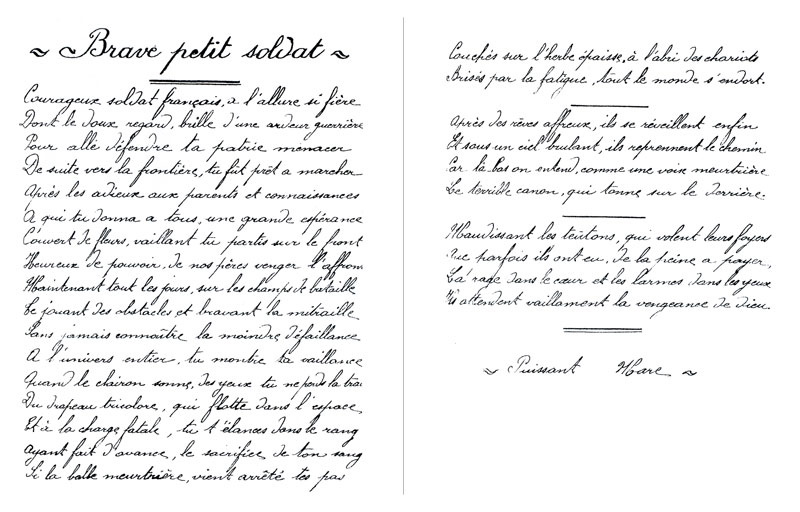 ~ Brave petit soldat ~
Courageux soldat français, a l'allure si fière
Dont le doux regard, brille d'une ardeur guerrière
Pour allé défendre ta patrie menacer
De suite vers la frontière, tu fût prêt a marcher
Après les adieux aux parents et connaissances
A qui tu donna a tous, une grande espérance
Couvert de fleurs, vaillant tu partis sur le front
Heureux de pouvoir, de nos pères venger l'affron
Maintenant tout les jours, sur les champs de bataille
Te jouant des obstacles et bravant la mitraille
Sans jamais connaître la moindre défaillance
A l'univers entier, tu montre ta vaillance
Quand le clairon sonne, des yeux tu ne perds la trac
Du drapeau tricolore, qui flotte dans l'espace
Et à la charge fatale, tu t'élances dans le rang
Ayant fait d'avance, le sacrifice de ton sang
Si la balle meurtrière, vient arrêté tes pas
Couchés sur l'herbe épaisse, à l'abri des chariots
Brisés par la fatigue, tout le monde s'endort.
Après des rêves affreux, ils se réveillent enfin
Et sous un ciel brulant, ils reprennent le chemin
Car là bas on entend, comme une voix meurtrière
Le terrible canon, qui tonne sur le derrière.
Maudissant les teutons, qui volent leurs foyers
Que parfois ils ont eu, de la peine a payer,
La rage dans le cœur et les larmes dans les yeux
Ils attendent vaillament la vengeance de Dieu.
~ Puissant Marc ~